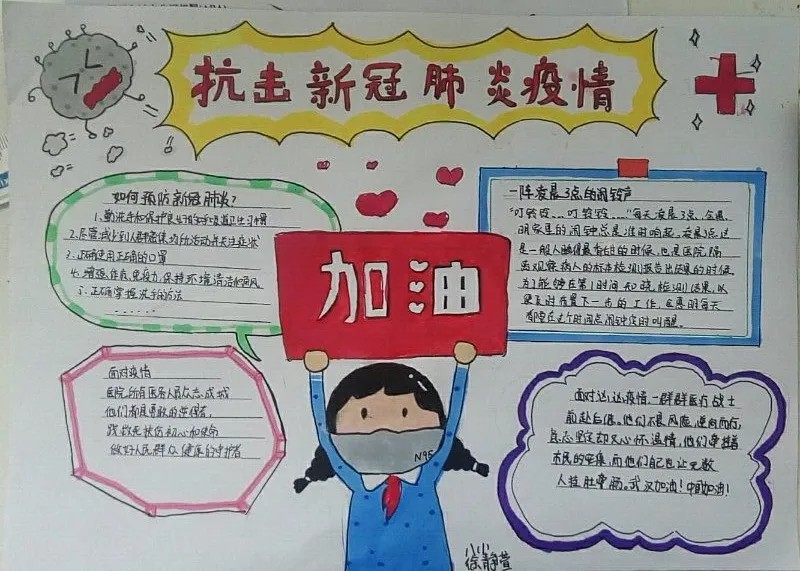 抗击新冠肺炎疫情
如何预防新冠肺炎?
1、勤洗手和保护良好
2、尽量减少到人群密集场所活动
3、正确使用正确的口罩
4、增强体质、免疫力、保持环境清洁和通风
5、正确掌握洗手的方法
......
一阵凌晨3点的闹铃声
“叮铃铃...叮铃铃...”每天凌晨3点,金晨
明家里的闹钟总是准时响起。凌晨3点
是一般人睡得最香的时候,也是医院隔
离观察病人的标本检测报告出结果的时候
为了能够在第1时间知晓检测结果,以
便及时布置下一步的工作,金晨明每天
都要在这个时间点闹钟定时叫醒。
加油
面对疫情
医院所有医务人员众志成城
他们都是勇敢的逆行者,
践救死扶伤初心和使命
做好人民群众健康的守护者
面对这次疫情,一群群医疗战士
前赴后继。他们不畏风险,逆向而行,
意志坚定却又心怀温情,他们牵挂着
市民的安危,而他们自己也让无数
人挂肚牵肠。武汉加油!中国加油!
N95
徐静萱